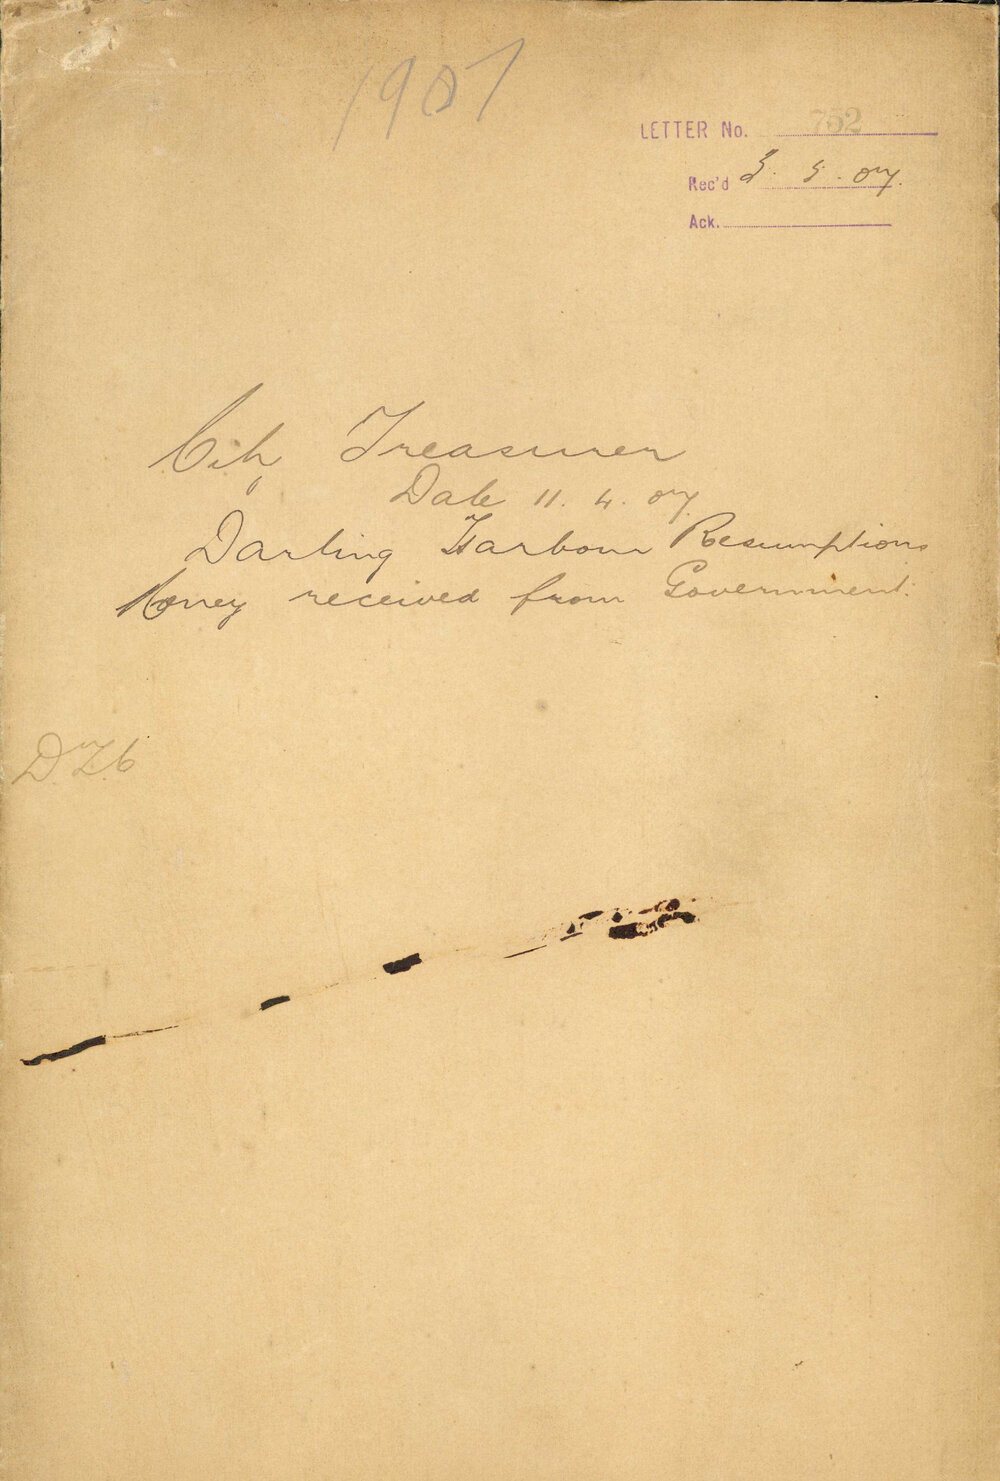 1907
LETTER No. 752
Rec'd 3. 5. 07.
Ack.
City Treasurer
Date 11. 4. 07.
Darling Harbour Resumptions
Money received from Government.